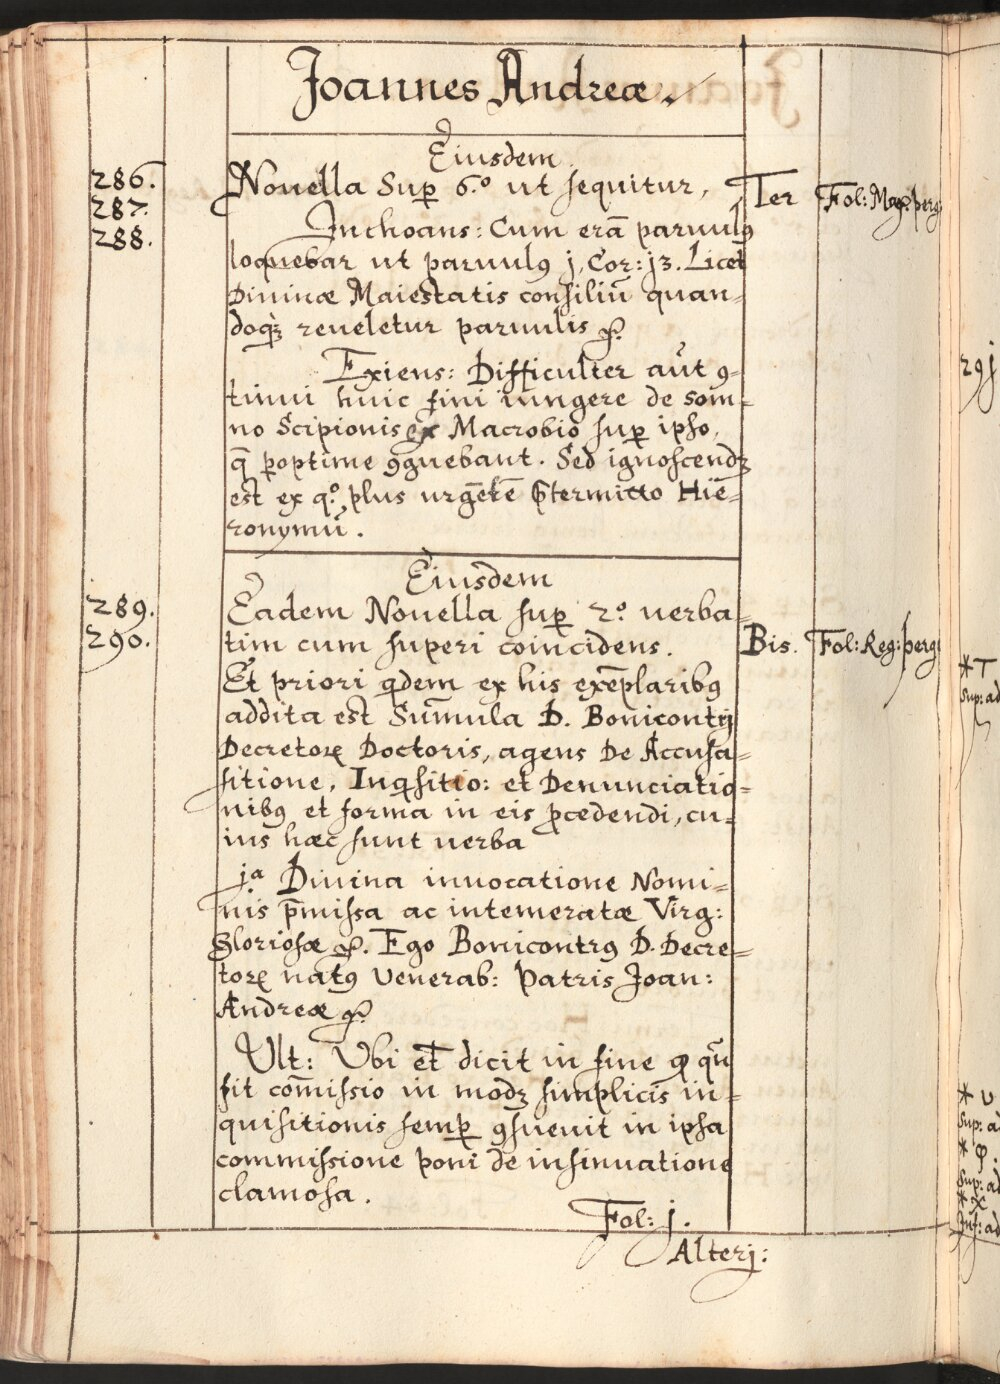 Joannes Andreæ.
Eiusdem
286. Nouella Sup̱ 6.º ut sequitur, Ter Fol: Max: perg
287.
288. Inchoans: Cum erā paruulꝯ
loquebar ut paruulꝯ j. Cor: j3. Licet
Diuinæ Maiestatis consiliū quan-
doqꝫ reueletur paruulis &.
Exiens: Difficulter aut̄ ꝯ-
tinui huic fini iungere de som-
no Scipionis ex Macrobio sup̱ ipso,
q̄ ꝑoptime ꝯgruebant. Sed ignoscendꝫ
est ex qº. plus urgētē p̄termitto Hiē-
ronymū.
Eiusdem
289. Eadem Nouella sup̱ 2.º uerba-
290. tim cum superi coincidens. Bis. Fol: Reg: perg
Et priori qdem ex his exēplaribꝯ
addita est Sum̄ula D. Bonicontrij
Decretoꝝ Doctoris, agens De Accusa-
sitione, Inqsitio: et Denunciatio-
nibꝯ et forma in eis p̄cedendi, cu-
ius hæc sunt uerba
jª Diuina inuocatione Nomi-
nis p̄missa ac intemeratæ Virg:
Gloriosæ &. Ego Bonicontrꝯ D. Decre-
toꝝ natꝯ Venerab: Patris Joan:
Andreæ &.
Ult: Vbi et̄ dicit in fine ꝙ qn̄
fit com̄issio in modꝫ simplicis in-
quisitionis semp̱ ꝯsueuit in ipsa
commissione poni de insinuatione
clamosa.
Fol: j.
Alterj:
29j
*T
Sup: ad
* υ
Sup: a
* φ.
Sup: ad
* χ
Inf: ad